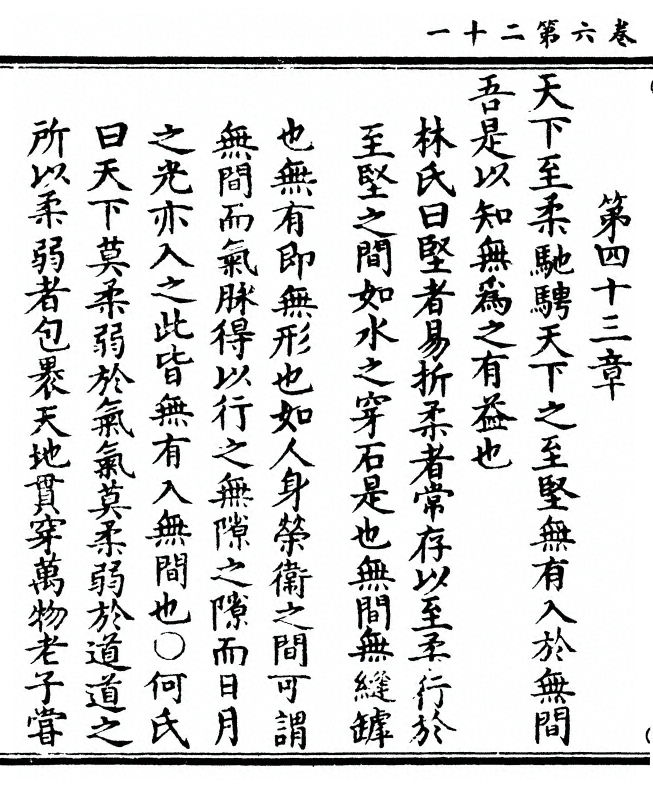 卷六第二十一
第四十三章
天下至柔馳騁天下之至堅無有入於無間
吾是以知無為之有益也
林氏曰堅者易折柔者常存以至柔行於
至堅之間如水之穿石是也無間無縫罅
也無有即無形也如人身榮衛之間可謂
無間而氣脉得以行之無隙之隙而日月
之光亦入之此皆無有入無間也〇何氏
曰天下莫柔弱於氣氣莫柔弱於道道之
所以柔弱者包褁天地貫穿萬物老子甞